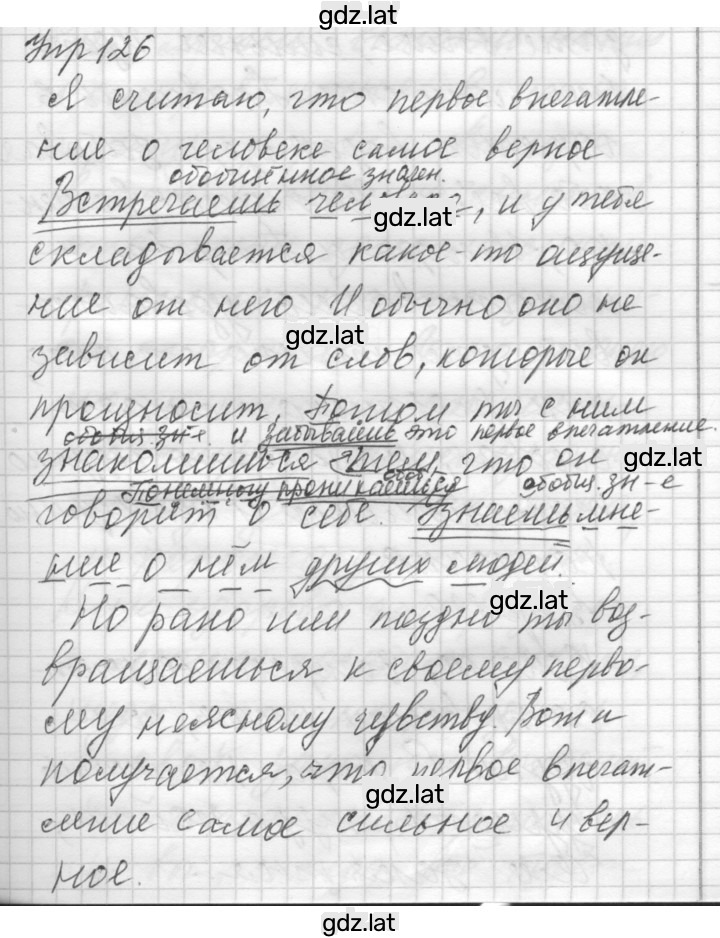 gdz.lat
Упр 126
Я считаю, что первое впечатле-
ние о человеке самое верное
обобщённое значен.
Встречаешь gdz.lat, и у тебя
складывается какое-то ощуще-
ние от него И обычно оно не
gdz.lat
зависит от слов, которые он
произносит. Потом ты с ним
обобщ зн-е и забываешь это первое впечатление.
знакомишься тем, что он gdz.lat
Понемногу проникаешься обобщ. зн-е
говорит о себе. Узнаешь мне-
ние о нём других людей.
gdz.lat
Но рано или поздно ты воз-
вращаешься к своему перво-
му неясному чувству. Вот и
получается, что первое впечат-
gdz.lat
ление самое сильное и вер-
ное.
gdz.lat